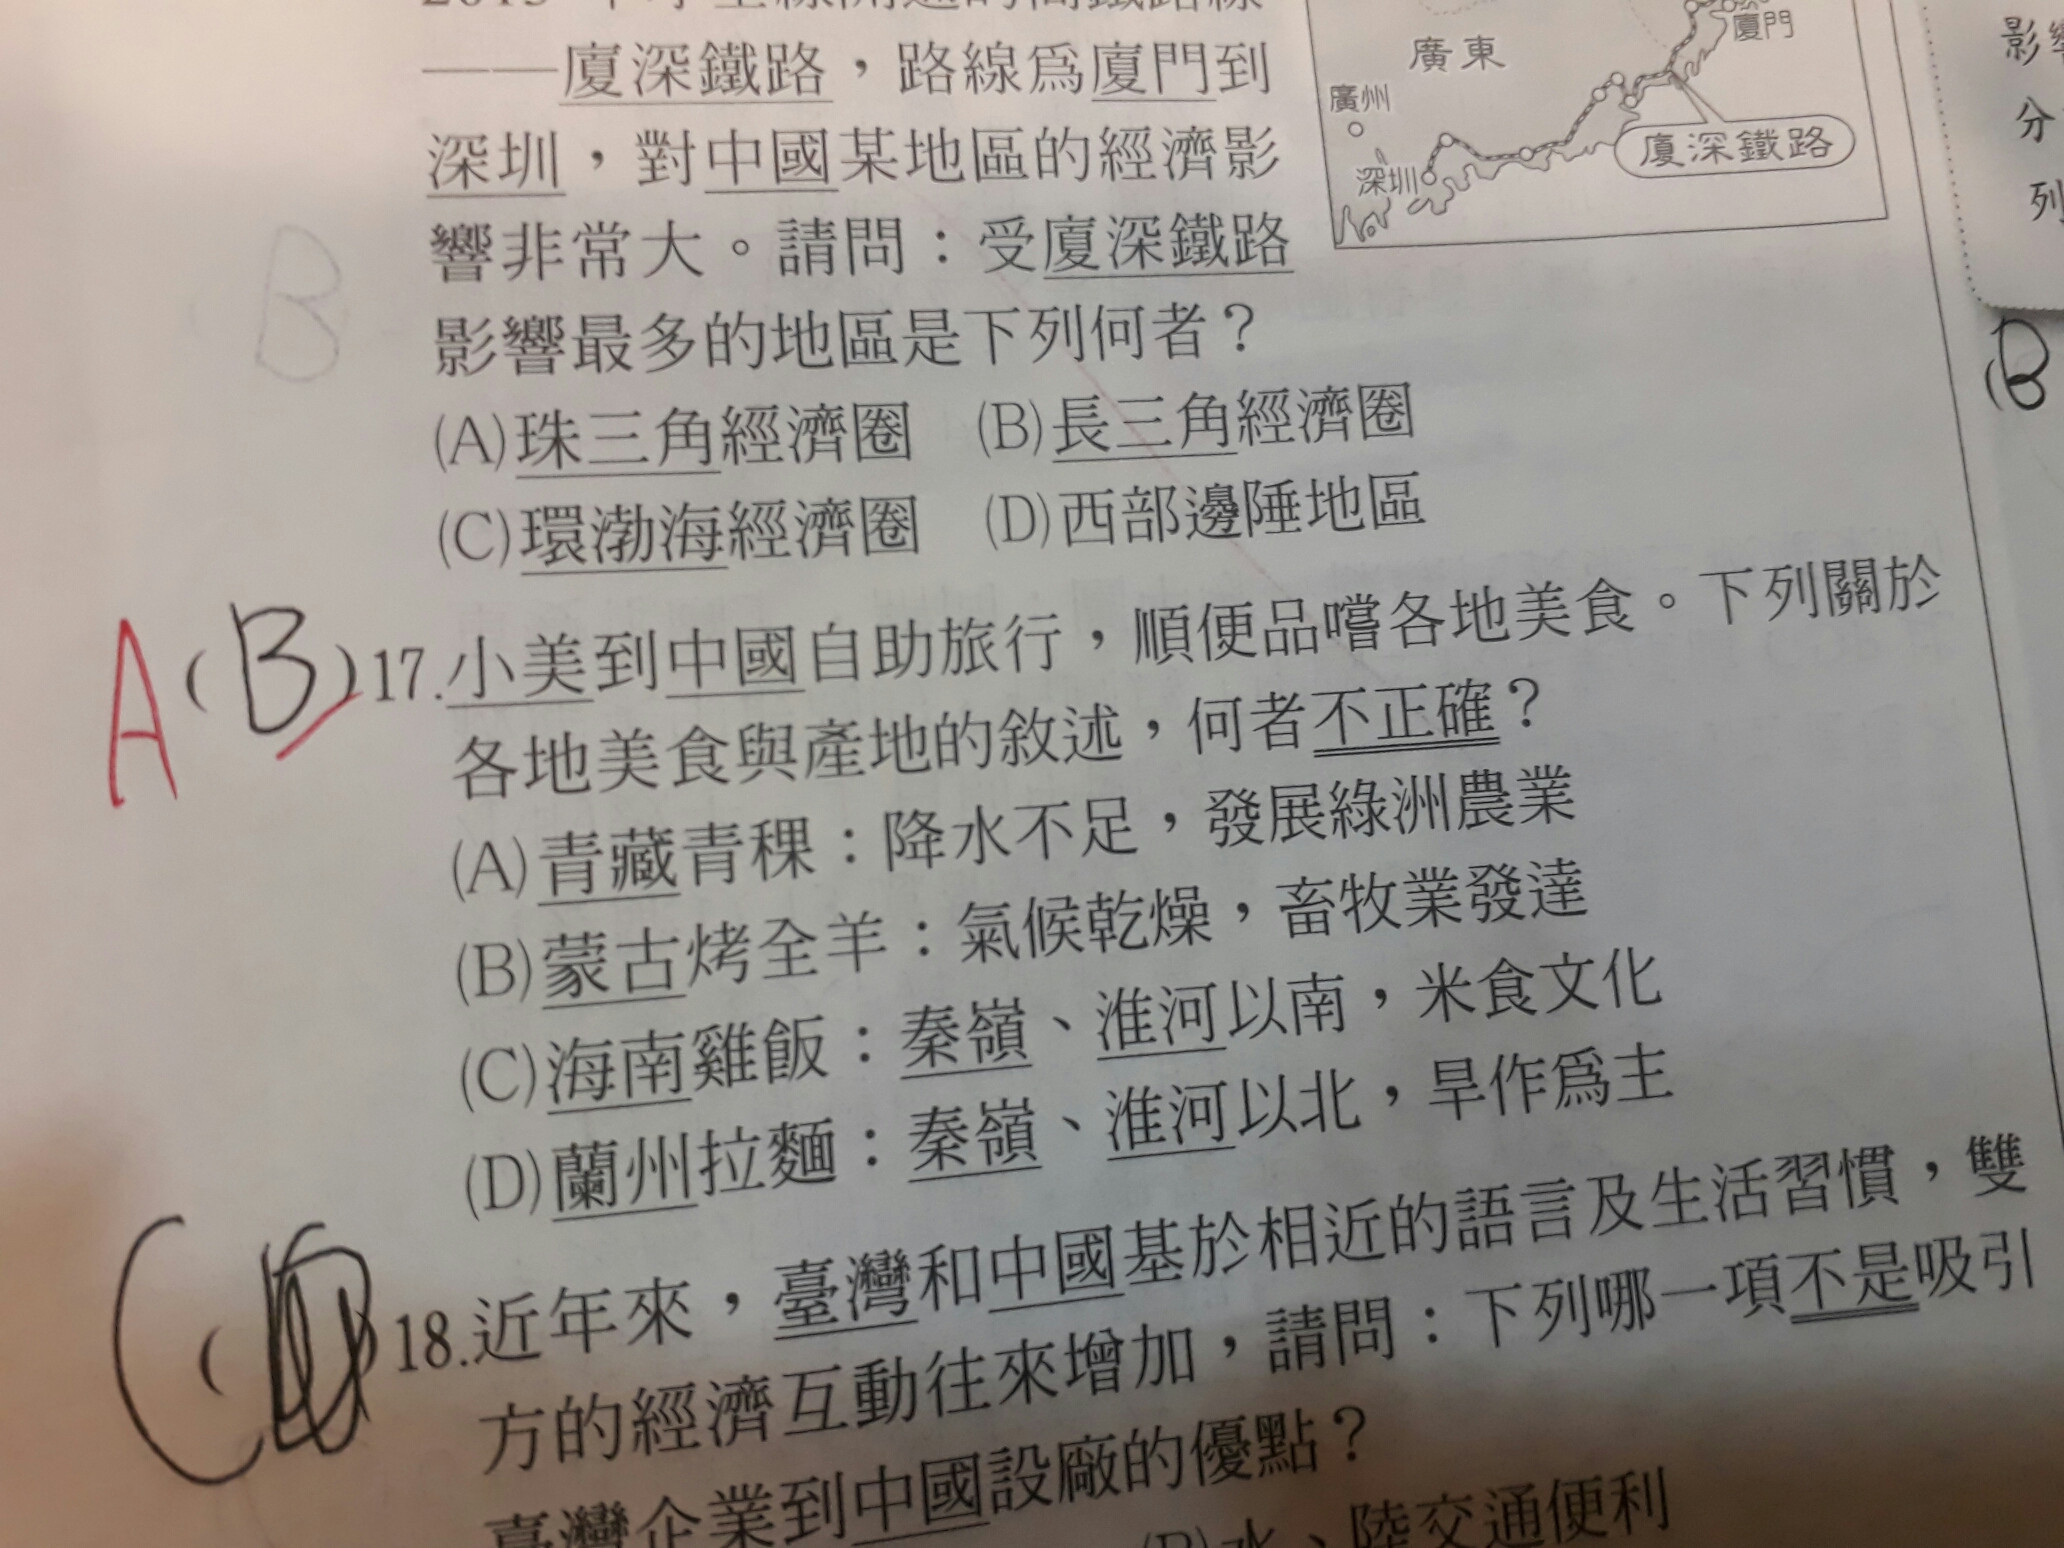 ——廈深鐵路，路線為廈門到
深圳，對中國某地區的經濟影
響非常大。請問：受廈深鐵路
影響最多的地區是下列何者？
(A)珠三角經濟圈 (B)長三角經濟圈
(C)環渤海經濟圈 (D)西部邊陲地區
廣東
廈門
廣州
深圳
廈深鐵路
B
A(B)17.小美到中國自助旅行，順便品嚐各地美食。下列關於
各地美食與產地的敘述，何者不正確？
(A)青藏青稞：降水不足，發展綠洲農業
(B)蒙古烤全羊：氣候乾燥，畜牧業發達
(C)海南雞飯：秦嶺、淮河以南，米食文化
(D)蘭州拉麵：秦嶺、淮河以北，旱作為主
18.近年來，臺灣和中國基於相近的語言及生活習慣，雙
方的經濟互動往來增加，請問：下列哪一項不是吸引
臺灣企業到中國設廠的優點？
(B)水、陸交通便利
影
分
列
(B